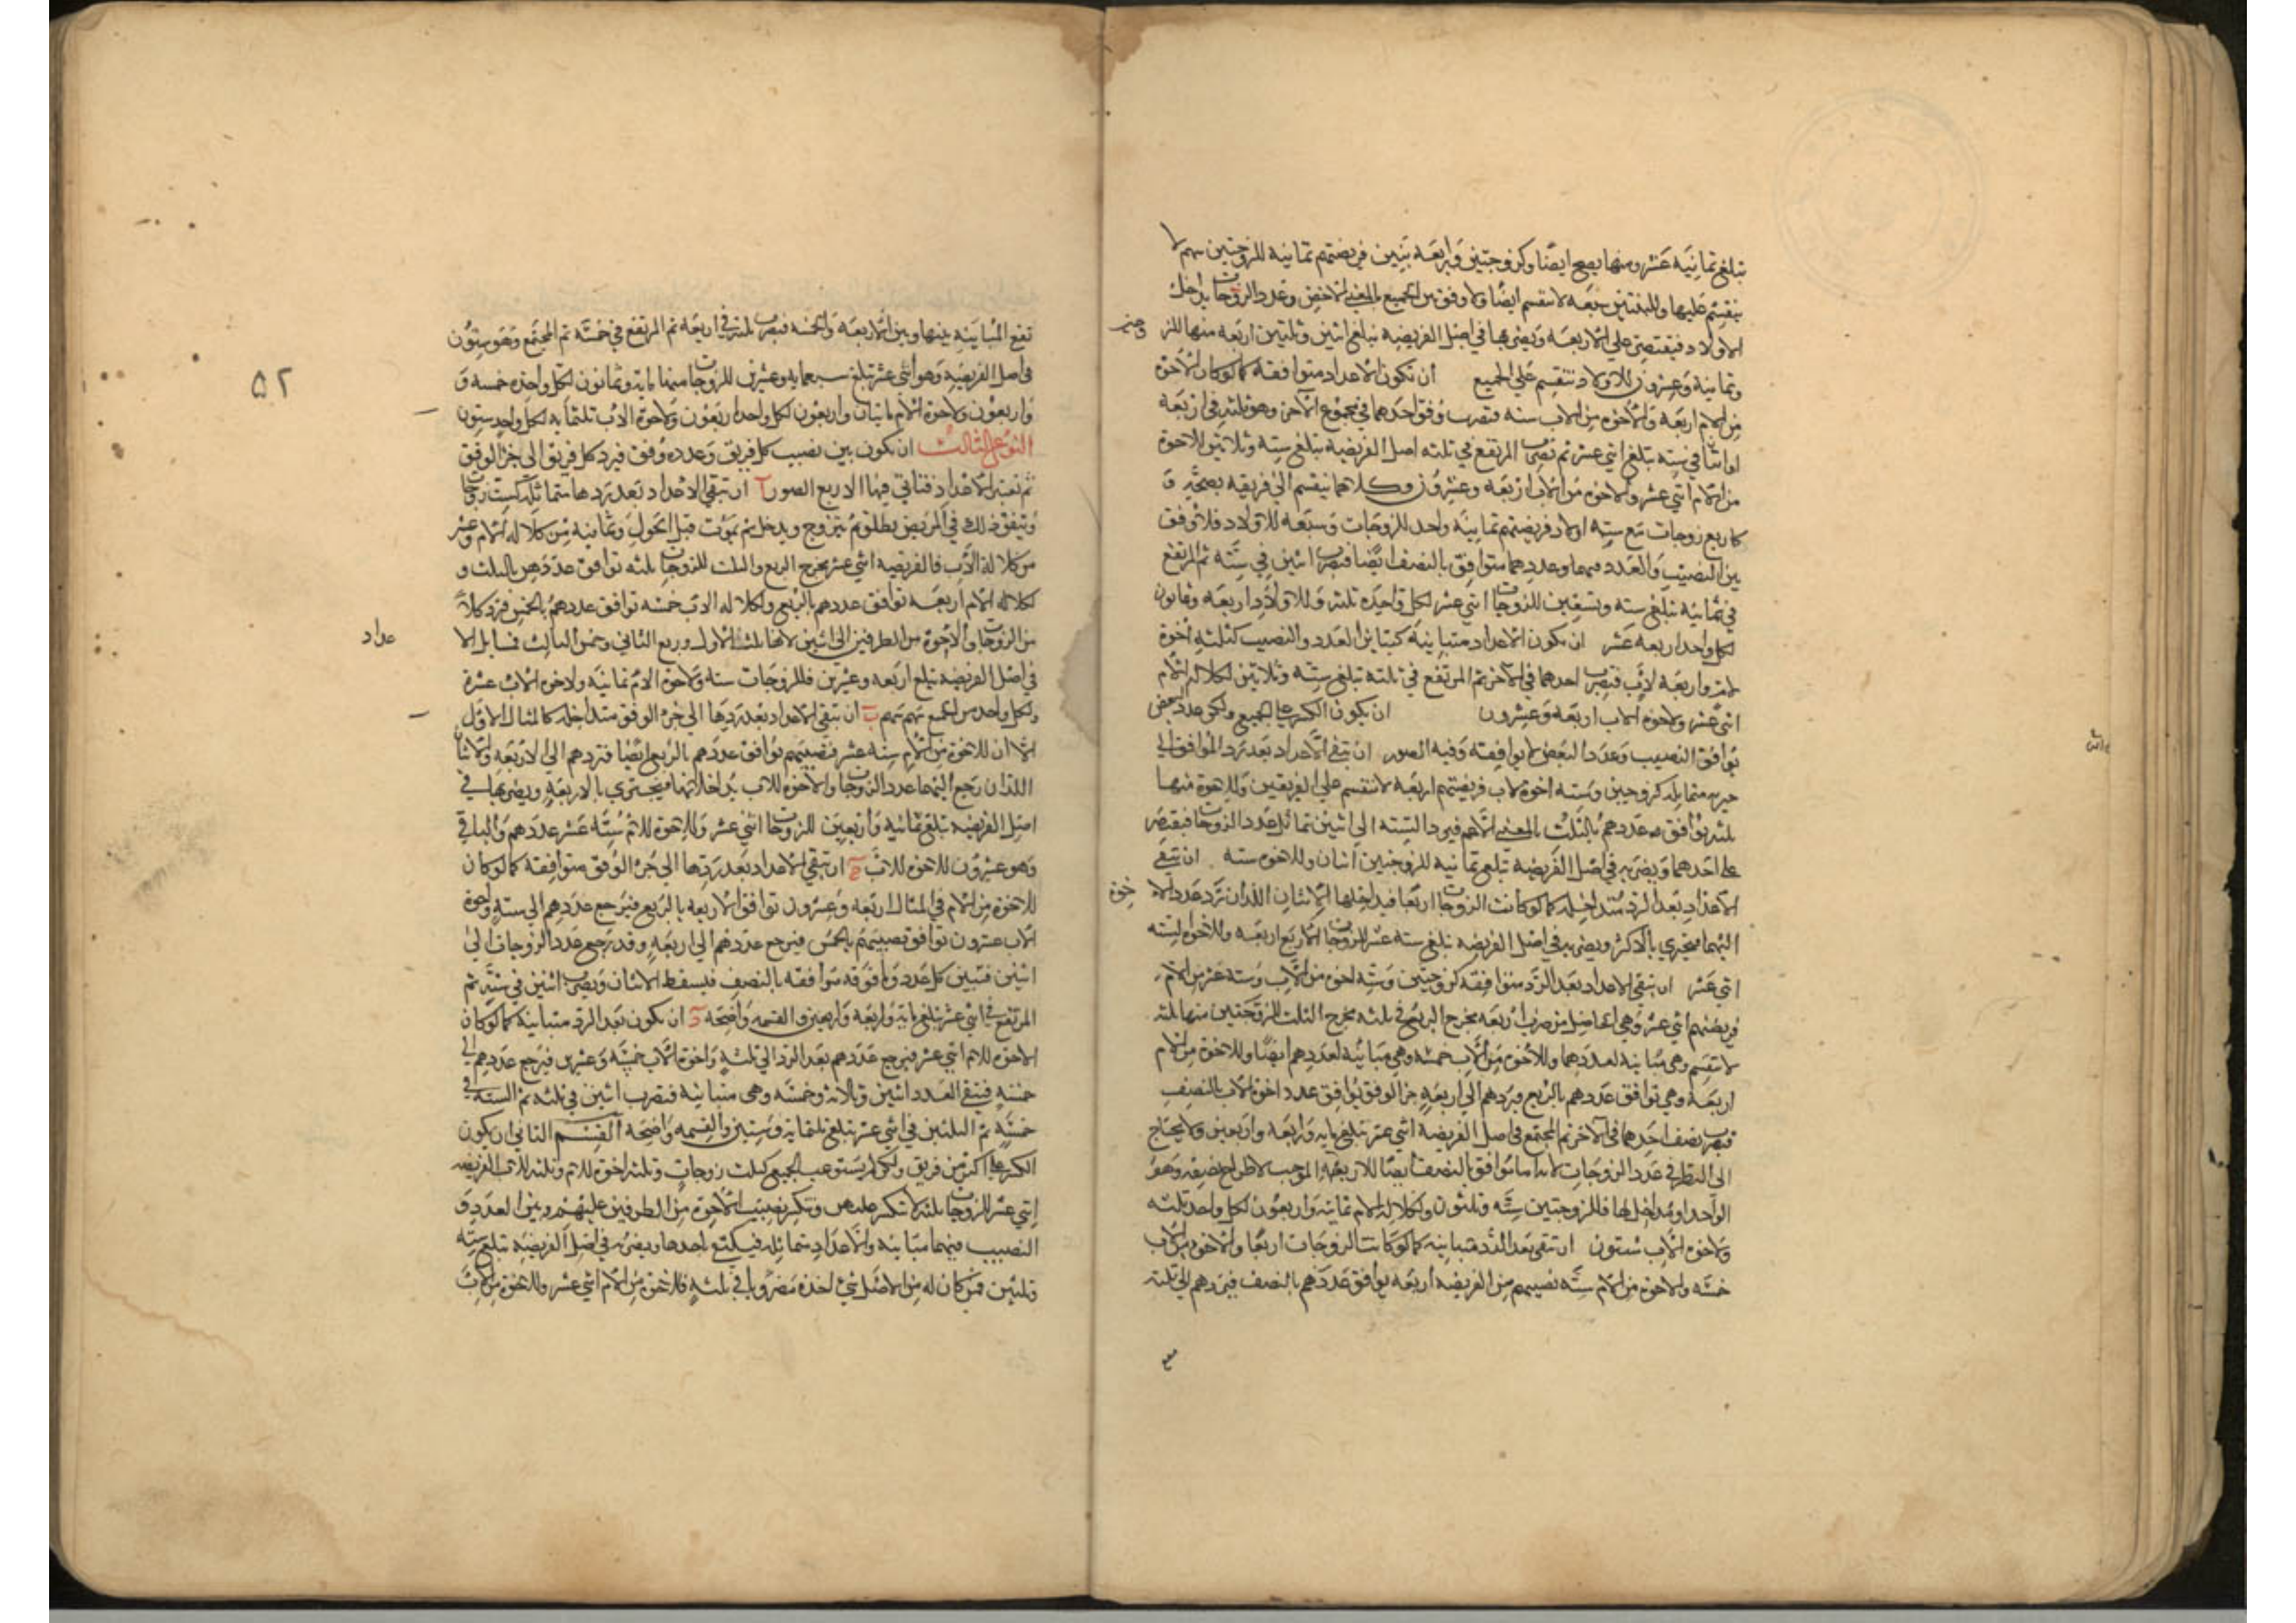 تبلغ ثمانية عشر ومنها يصح ايضا وكزوجتين واربعة بنين فريضتهم ثمانية للزوجتين سهم لا
ينقسم عليها وللبنتين سبعة لا تنقسم ايضا ولا وفق بين الجميع بالمعنى الاخص وعدد الزوجات يداخل
الاولاد فيقتصر على الاربعة ويضربها في اصل الفريضة تبلغ اثنين وثلثين اربعة منها للز وجتين
وثمانية وعشرون للاولاد تنقسم على الجميع ان تكون الاعداد متوافقة كما لو كان الاخوة
من الام اربعة والاخوة من الاب ستة فتضرب وفق احدهما في مجموع الاخر وهو ثلثه في اربعة
او اثنان في ستة تبلغ اثني عشر ثم تضرب المرتفع في ثلثة اصل الفريضة تبلغ ستة وثلاثين للاخوة
من الام اثني عشر وللاخوة من الاب اربعة وعشرون وكلاهما ينقسم الى فريقه بصحة و
كاربع زوجات مع ستة اولاد فريضتهم ثمانية واحد للزوجات وسبعة للاولاد فلا وفق
بين النصيب والعدد فيهما وعددهما متوافق بالنصف ايضا فتضرب اثنين في ستة ثم المرتفع
في ثمانية تبلغ ستة وتسعين للزوجات اثني عشر لكل واحدة ثلثة وللاولاد اربعة وثمانون
لكل واحد اربعة عشر ان يكون الاعداد متباينة كتباين العدد والنصيب كثلثة اخوة
لام واربعة لاب فتضرب احدهما في الاخر ثم المرتفع في ثلثة تبلغ ستة وثلاثين لكلالة الام
اثني عشر ولاخوة الاب اربعة وعشرون ان يكون الكسر على الجميع ولكن عدد البعض
يوافق النصيب وعدد البعض لا يوافقه وفيه الصور ان تبقى الاعداد بعد رد الموافق الى
جزئه متماثلة كزوجين وستة اخوة لاب فريضتهم اربعة لا تنقسم على الفريقين وللاخوة منها
ثلثة يوافق عددهم بالثلث بالمعنى الاعم فيرد الستة الى اثنين تماثل عدد الزوجات فيقتصر
على احدهما ويضربه في اصل الفريضة تبلغ ثمانية للزوجتين اثنان وللاخوة ستة ان تبقى
الاعداد بعد الرد متداخلة كما لو كانت الزوجات اربعا فيداخلها الاثنان اللذان ترد عدد الا خوة
اليهما فيجتزي بالاكثر ويضربه في اصل الفريضة تبلغ ستة عشر للزوجات الاربع اربعة وللاخوة الستة
اثني عشر ان تبقى الاعداد بعد الرد متوافقة كزوجتين وستة اخوة من الاب وستة عشر من الام
فريضتهم اثني عشر وهي الحاصل من ضرب اربعة مخرج الربع في ثلثة مخرج الثلث للزوجتين منها ثلثة
لا تنقسم وهي مباينة لعددهما وللاخوة من الاب خمسة وهي مباينة لعددهم ايضا وللاخوة من الام
اربعة وهي توافق عددهم بالربع فيردهم الى اربعة جزء الوفق يوافق عدد اخوة الاب بالنصف
فتضرب نصف احدهما في الاخر ثم المجتمع في اصل الفريضة اثني عشر تبلغ مائة واربعة واربعين ولا يحتاج
الى النظر في عدد الزوجات لانه اما توافق بالنصف ايضا للاربعة الموجب لاطراح نصفه وهو
الواحد او يداخلها فللزوجتين ستة وثلثون ولكلالة الام ثمانية واربعون لكل واحد ثلثة
ولاخوة الاب ستون ان تبقى بعد الرد متباينة كما لو كانت الزوجات اربعا والاخوة من الاب
خمسة والاخوة من الام ستة نصيبهم من الفريضة اربعة يوافق عددهم بالنصف فيردهم الى ثلثة
٥٢
تقع المباينة بينها وبين الاربعة والخمسة فتضرب ثلثة في اربعة ثم المرتفع في خمسة ثم المجتمع وهو ستون
في اصل الفريضة وهو اثني عشر تبلغ سبعمائة وعشرين للزوجات منها مائة وثمانون لكل واحدة خمسة و
واربعون ولاخوة الام مائتان واربعون لكل واحد اربعون ولاخوة الاب ثلثمائة لكل واحد ستون
النوع الثالث ان يكون بين نصيب كل فريق وعدده وفق فيرد كل فريق الى جزء الوفق
ثم تعتبر الاعداد فتاتي فيها الاربع الصور آ ان تبقى الاعداد بعد ردها متماثلة كست زوجات
ويتفق ذلك في المريض يطلق ثم يتزوج ويدخل ثم يموت قبل الحول وثمانية من كلالة الام وعشر
من كلالة الاب فالفريضة اثني عشر مخرج الربع والثلث للزوجات ثلثة توافق عددهن بالثلث و
لكلالة الام اربعة توافق عددهم بالربع ولكلالة الاب خمسة توافق عددهم بالخمس فترد كلا
من الزوجات والاخوة من الطرفين الى اثنين لانهما ثلث الاول وربع الثاني وخمس الثالث فتماثل الا عداد
في اصل الفريضة تبلغ اربعة وعشرين فللزوجات ستة ولاخوة الام ثمانية ولاخوة الاب عشرة
ولكل واحد من الجميع سهم سهم ب ان تبقى الاعداد بعد ردها الى جزء الوفق متداخلة كالمثال الاول
الا ان للاخوة من الام ستة عشر فنصيبهم يوافق عددهم بالربع ايضا فتردهم الى الاربعة والاثنان
اللذان رجع اليهما عدد الزوجات والاخوة للاب يداخلانها فيجتزي بالاربعة ويضربها في
اصل الفريضة تبلغ ثمانية واربعين للزوجات اثني عشر وللاخوة للام ستة عشر عددهم والباقي
وهو عشرون للاخوة للاب ج ان تبقى الاعداد بعد ردها الى جزء الوفق متوافقة كما لو كان
للاخوة من الام في المثال اربعة وعشرون توافق الاربعة بالربع فيرجع عددهم الى ستة واخوة
الاب عشرون توافق نصيبهم بالخمس فيرجع عددهم الى اربعة وقد رجع عدد الزوجات الى
اثنين فتبين كل عدد وما فوقه موافقة بالنصف فيسقط الاثنان ويضرب اثنين في ستة ثم
المرتفع في اثني عشر تبلغ مائة واربعة واربعين والقسمة واضحة د ان يكون بعد الرد متباينة كما لو كان
الاخوة للام اثني عشر فيرجع عددهم بعد الرد الى ثلثة واخوة الاب خمسة وعشرين فيرجع عددهم الى
خمسة فيبقى العدد اثنين وثلاثة وخمسة وهي متباينة فتضرب اثنين في ثلثة ثم الستة في
خمسة ثم الثلثين في اثني عشر تبلغ ثلثمائة وستين والقسمة واضحة القسم الثاني ان يكون
الكسر على اكثر من فريق ولكن لم يستوعب الجميع كثلث زوجات وثلثة اخوة للام وثلثة للاب الفريضة
اثني عشر للزوجات ثلثة لا تنكسر عليهن وتنكسر نصيب الاخوة من الطرفين عليهم وبين العدد و
النصيب فيهما مباينة والاعداد متماثلة فيكتفي باحدها ويضربه في اصل الفريضة تبلغ ستة
وثلثين فمن كان له من الاصل شيء اخذه مضروبا في ثلثة فللاخوة من الام اثني عشر وللاخوة من الاب